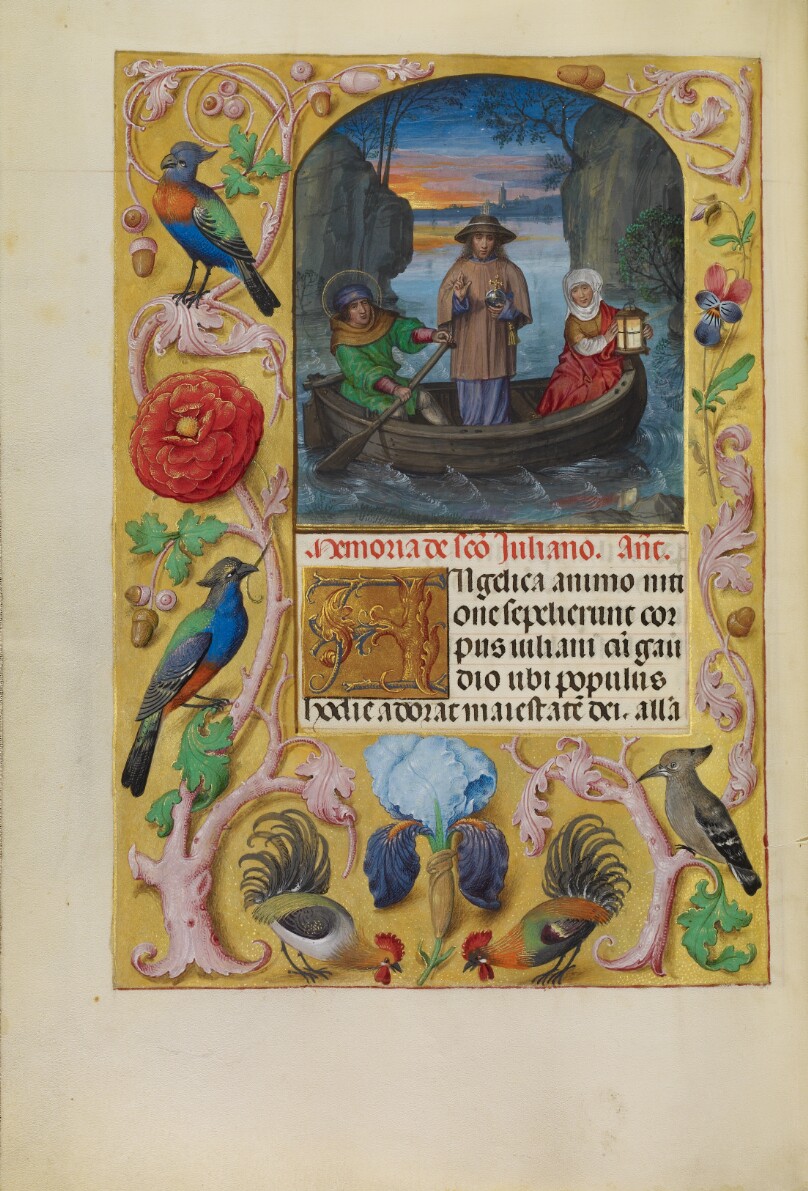 Memoria de scō Iuliano. Añt.
Angelica animo niti
one sepelierunt cor
pus iuliani cū gau
dio ubi populus
hodie adorat maiestatē dei. alla